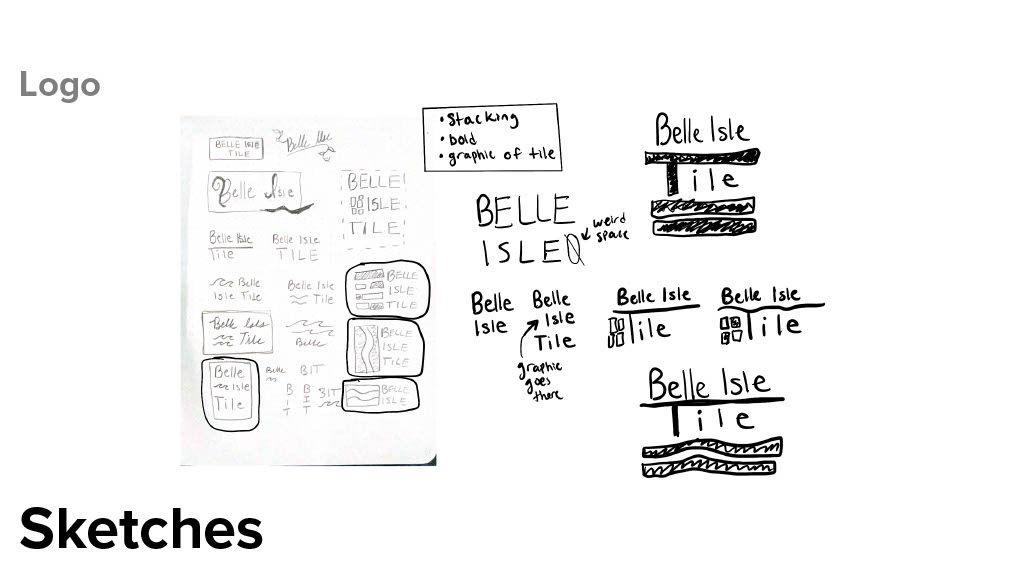 Logo
BELLE ISLE
TILE
Belle Isle
Belle Isle
BELLE
ISLE
TILE
Belle Isle
Tile
Belle Isle
TILE
Belle
Isle Tile
Belle Isle
Tile
BELLE
ISLE
TILE
Belle Isle
Tile
Belle
BELLE
ISLE
TILE
Belle
Isle
Tile
Belle
BIT
B
I
T
B
I
T
BIT
BELLE
ISLE
• Stacking
• bold
• graphic of tile
BELLE
ISLE
weird
space
Belle
Isle
Belle
Isle
Tile
graphic
goes
there
Belle Isle
Tile
Belle Isle
Tile
Belle Isle
Tile
Belle Isle
Tile
Sketches